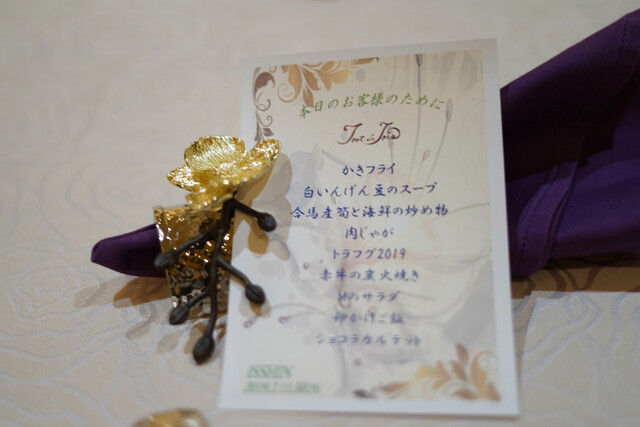 本日のお客様のために
かきフライ
白いんげん豆のスープ
合馬産筍と海鮮の炒め物
肉じゃが
トラフグ2019
赤牛の炭火焼き
のサラダ
卵かけご飯
ショコラカルテット
ISSHIN